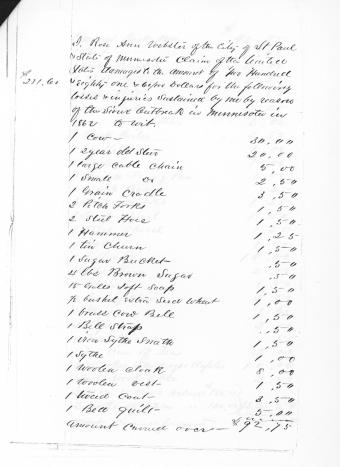 I, Rose Ann Webster of the City of St Paul
& State of Minnesota Claim of the United
States damages to the amount of Two Hundred
& eighty one & Dollars for the following
losses & injuries sustained by me by reason
of the Sioux Outbreak in Minnesota in
1862 to wit.
1 Cow — 30,00
1 2 year old Steer 20,00
1 large Cable Chain 5,00
1 Small Do 2,50
1 Grain Cradle 3,50
2 Pitch Forks 1,50
2 Steel Hoes 1,50
1 Hammer 1,25
1 tin Churn 1,50
1 Sugar Bucket ,50
4 lbs Brown Sugar ,50
15 Galls Soft Soap 1,50
½ bushel extra Seed Wheat 1,00
1 brass Cow Bell 1,50
1 Bell Strap ,50
1 iron Sythe Snath 1,50
1 Sythe 1,00
1 Woolen cloak 8,00
1 Woolen vest 1,50
1 tweed Coat 3,50
1 Bed quilt 5,00
Amount Carried over — $92,75